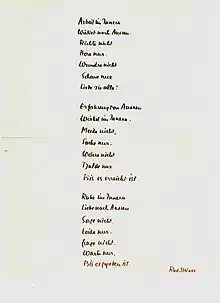 Arbeit im Innern
Wirket nach Aussen.
Richte nicht
Höre nur.
Wundre nicht
Schaue nur
Liebe sie alle!
Erfahrung von Aussen
Wirket im Innern.
Merke nicht,
nur.
Wehre nicht
Dulde nur
Bis es erreicht ist.
Ruhe im Innern
Liebe nach Aussen
Sage nicht.
Leide nur.
Frage nicht.
Warte nur.
Bis es gegeben ist.
Rud. Steiner